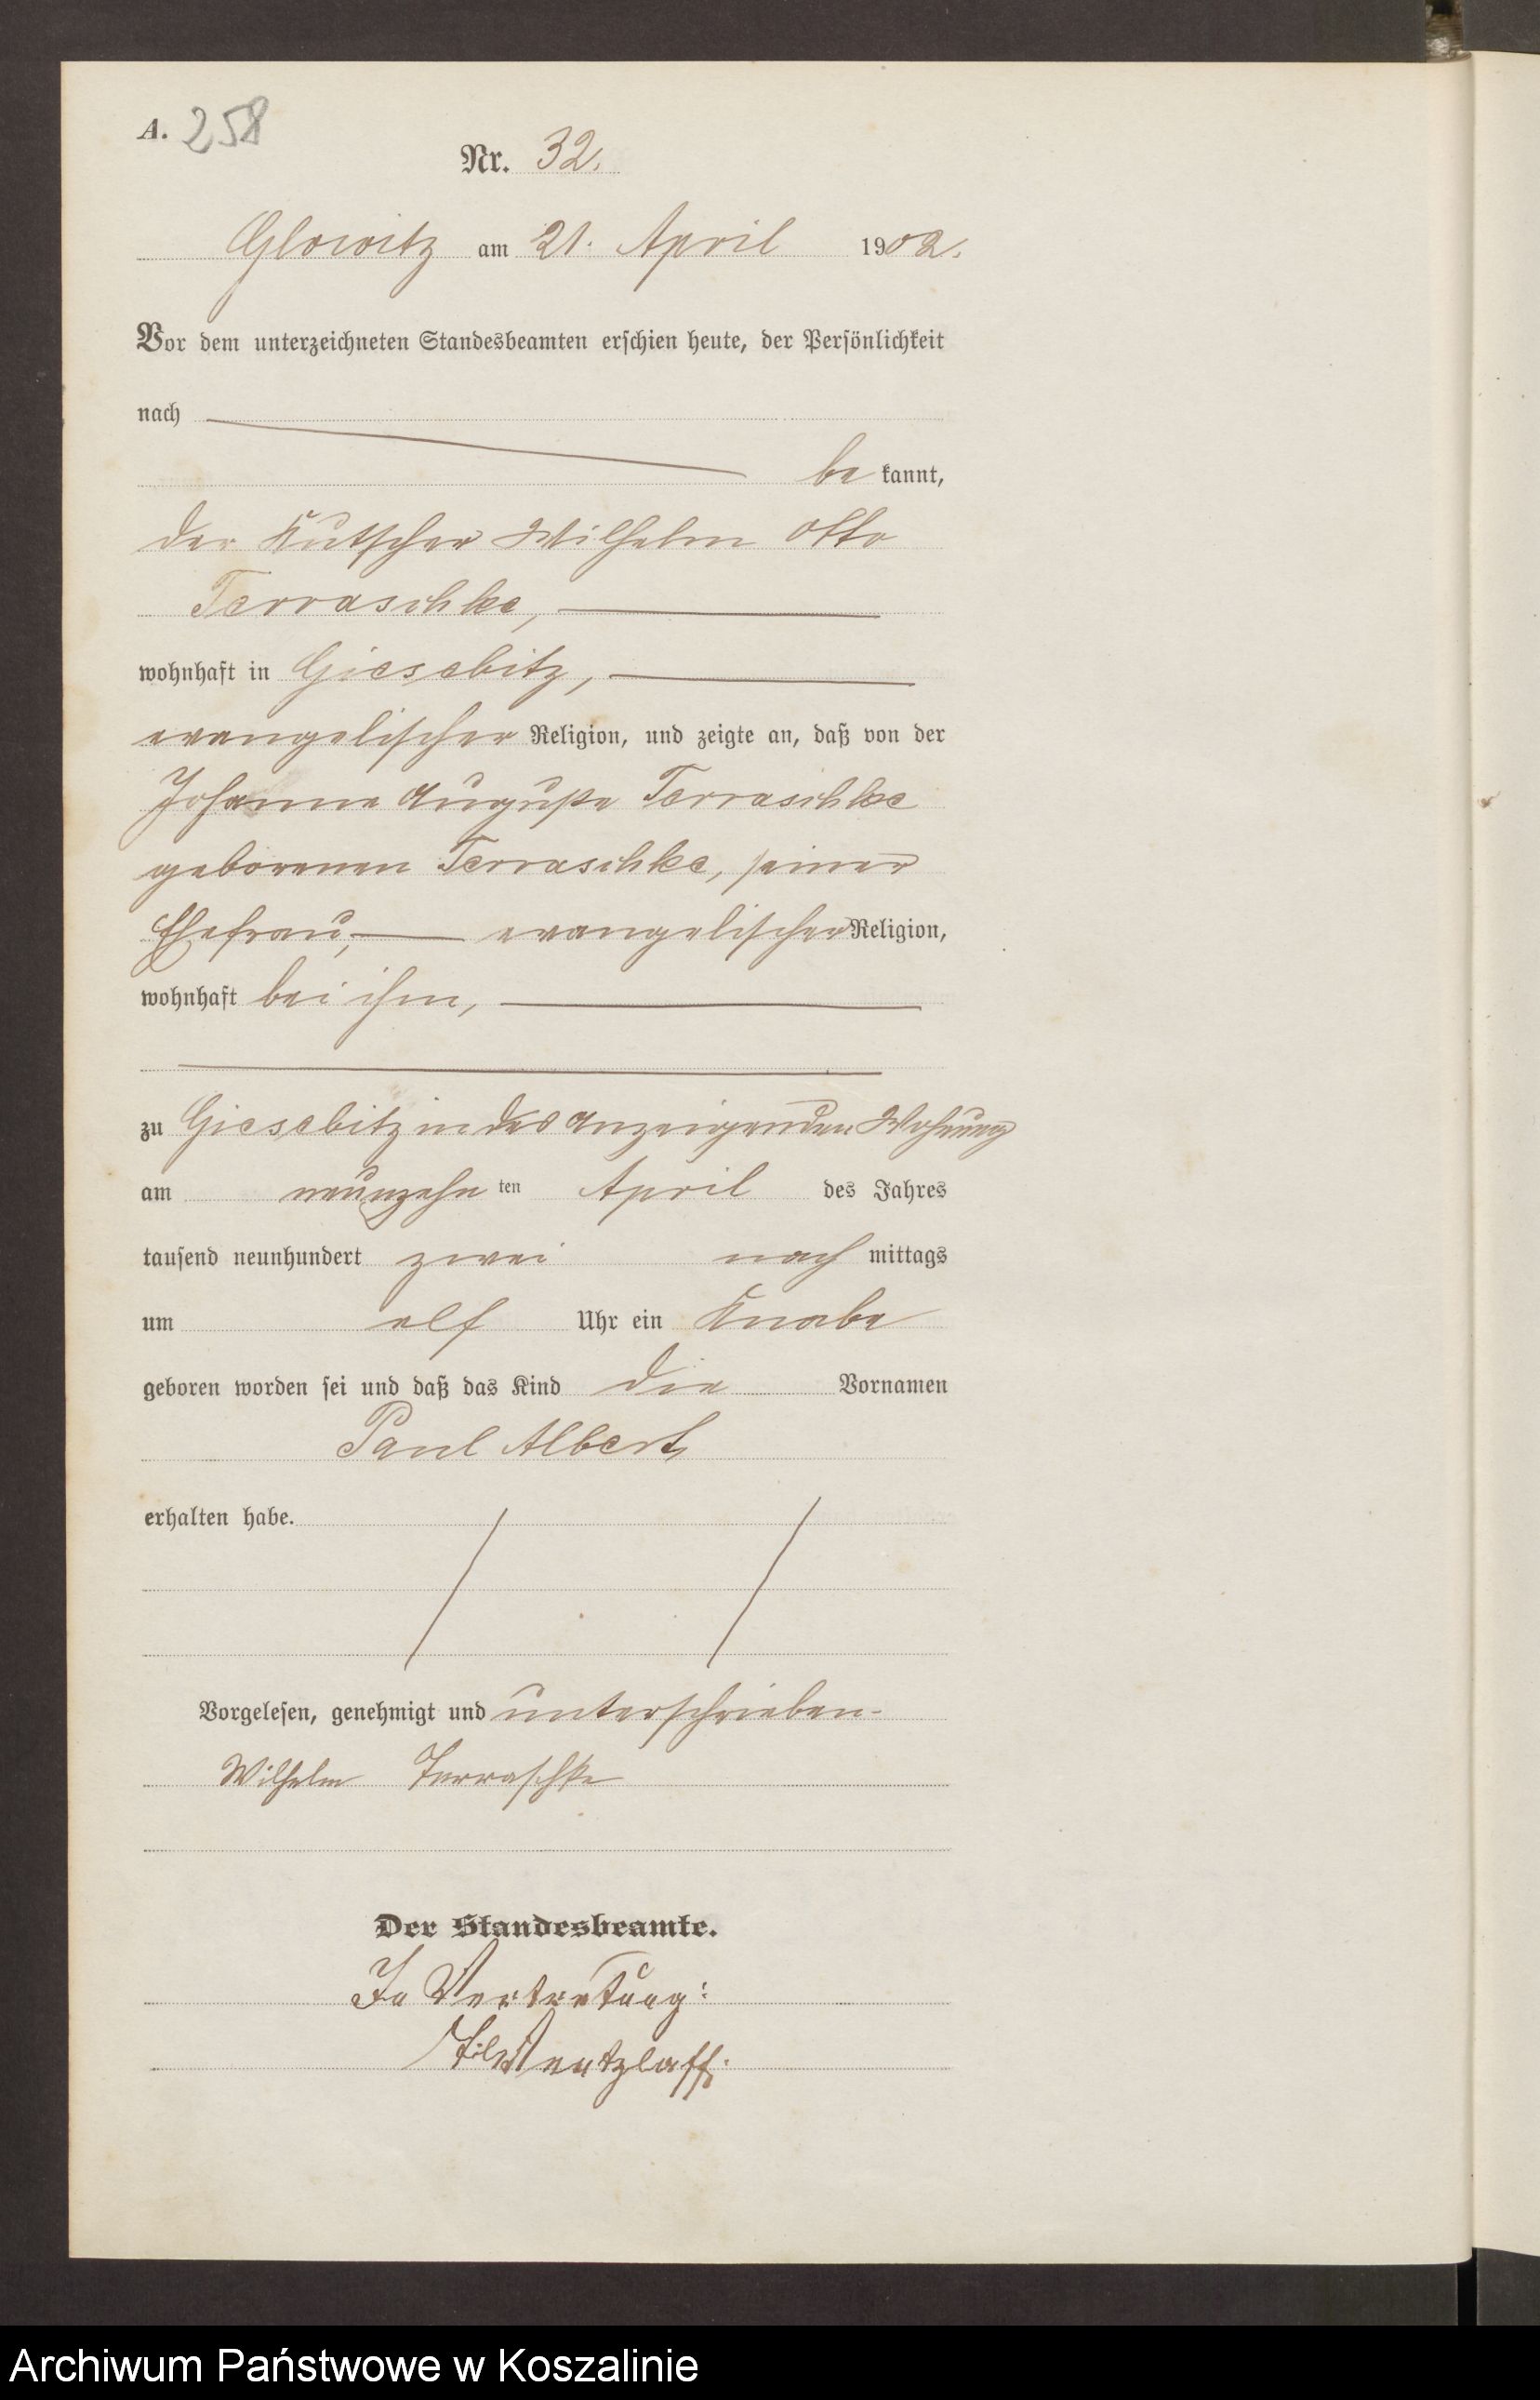 A. 258
Nr. 32.
Glowitz am 21. April 1902.
Vor dem unterzeichneten Standesbeamten erschien heute, der Persönlichkeit
nach
be kannt,
der Kutscher Wilhelm Otto
Terraschke,
wohnhaft in Giesebitz,
evangelischer Religion, und zeigte an, daß von der
Johanne Auguste Terraschke
geborenen Terraschke, seiner
Ehefrau, evangelischer Religion,
wohnhaft bei ihm,
zu Giesebitz in des Anzeigenden Wohnung
am neunzehn ten April des Jahres
tausend neunhundert zwei nach mittags
um elf Uhr ein Knabe
geboren worden sei und daß das Kind die Vornamen
Paul Albert
erhalten habe.
Vorgelesen, genehmigt und unterschrieben.
Wilhelm Terraschke
Der Standesbeamte.
In Vertretung:
Wentzlaff.
Archiwum Państwowe w Koszalinie